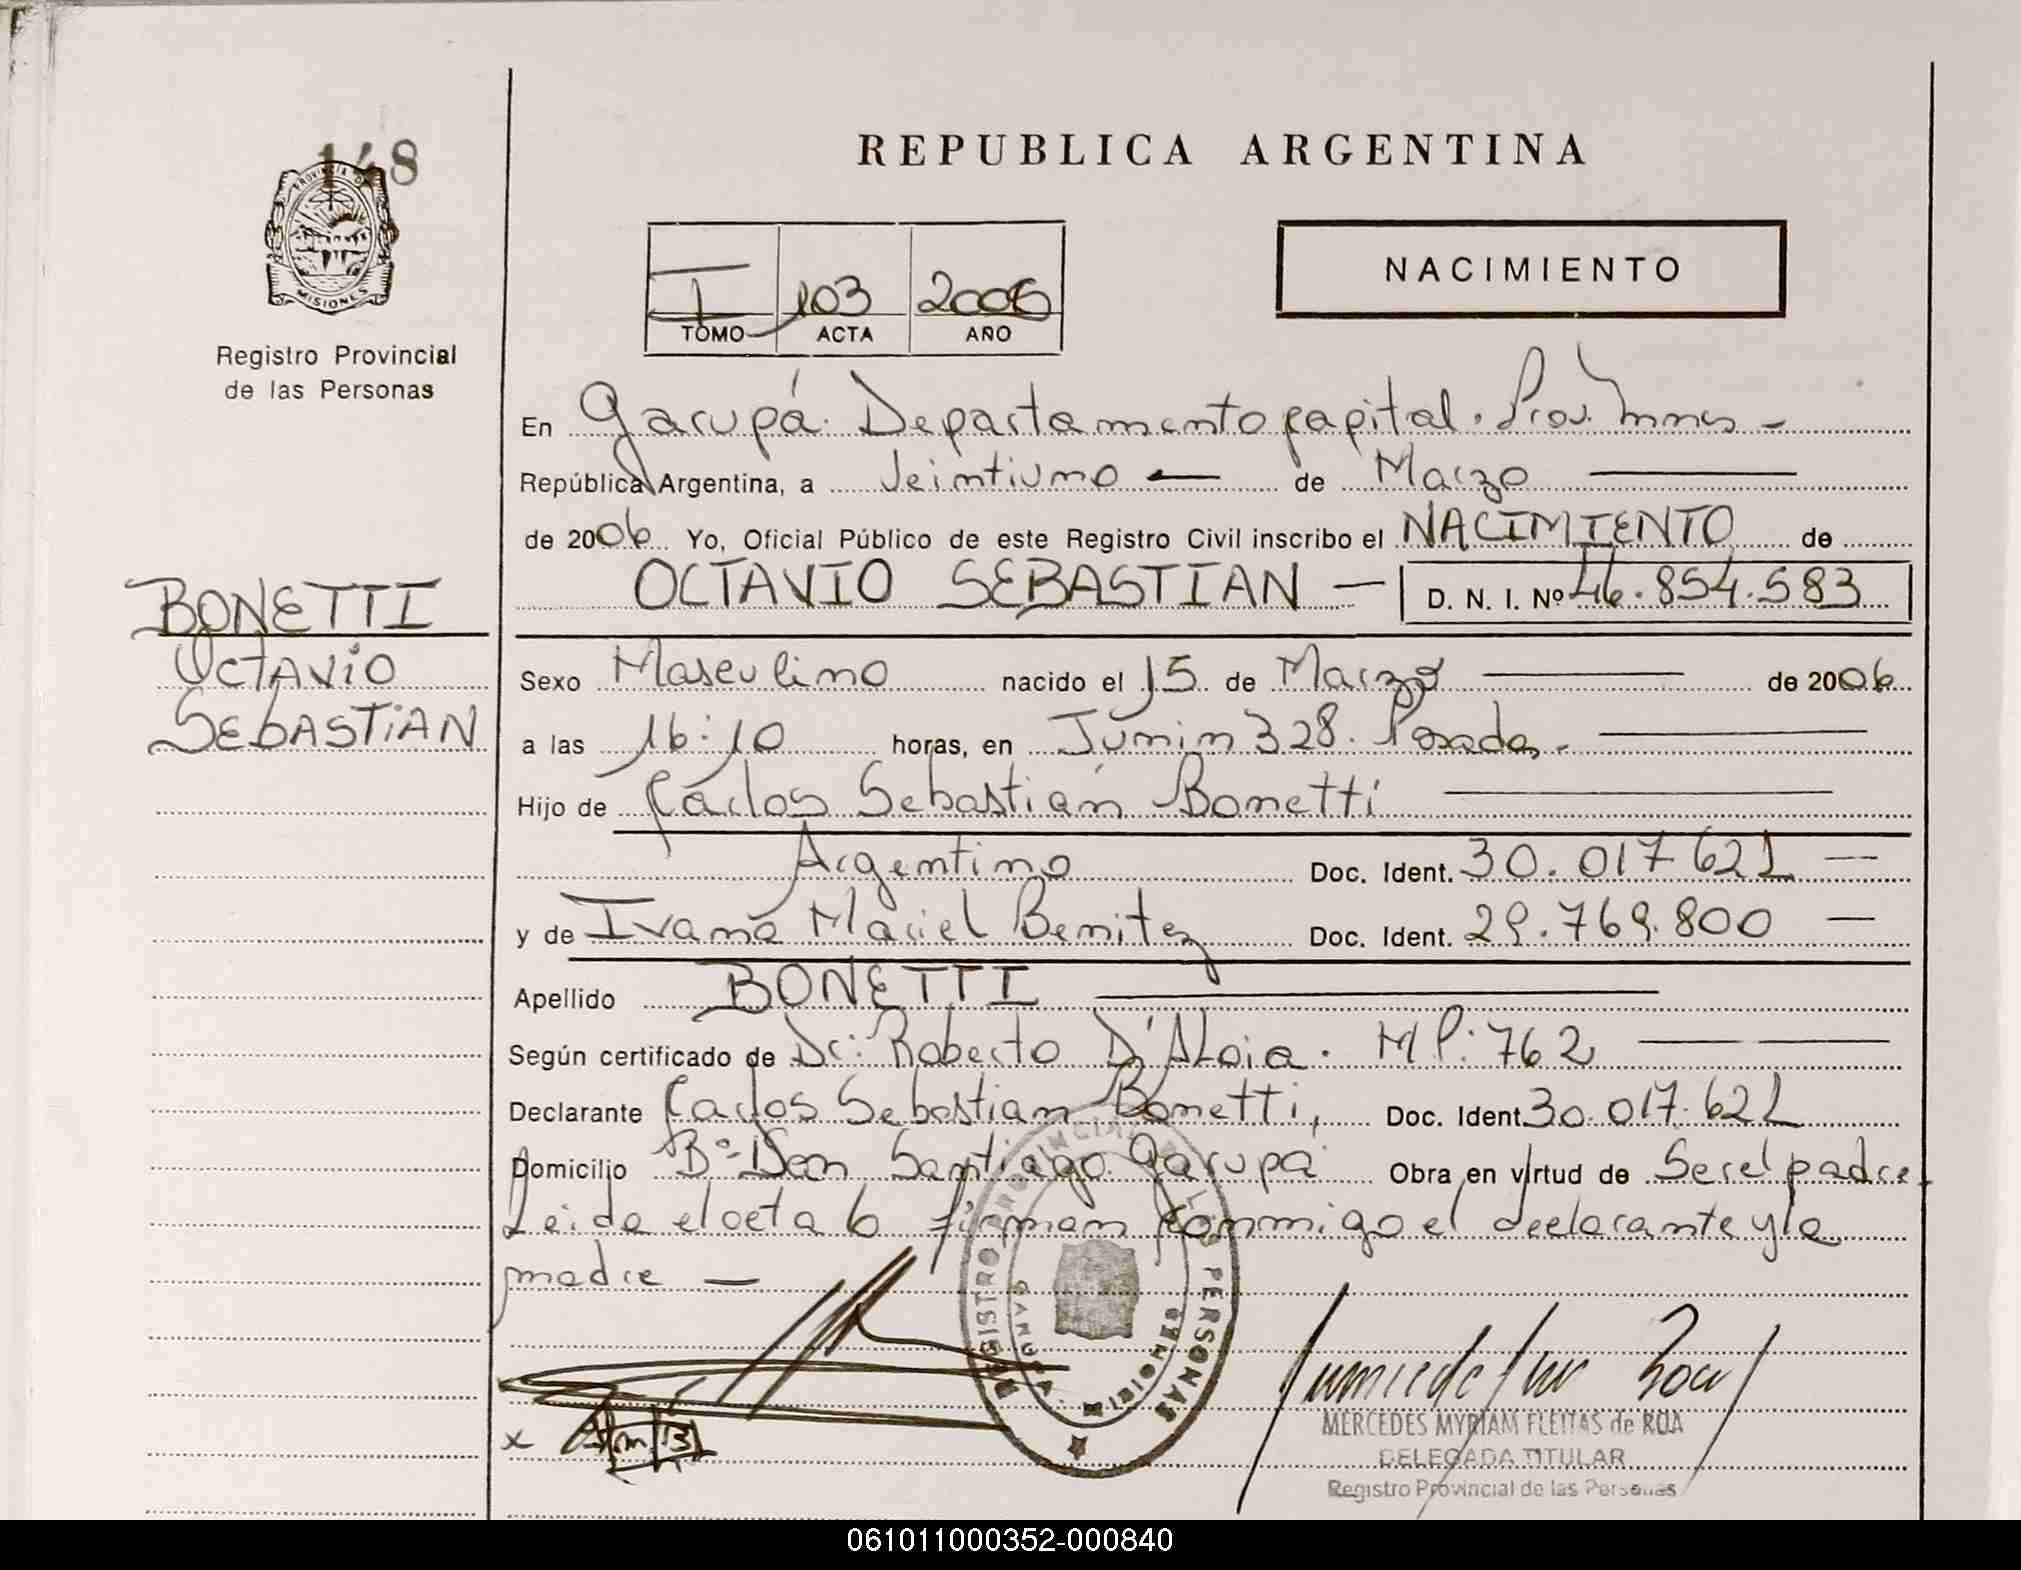 148
PROVINCIA DE
MISIONES
Registro Provincial
de las Personas
BONETTI
OCTAVIO
SEBASTIAN
REPUBLICA ARGENTINA
I 103 2006
TOMO ACTA AÑO
NACIMIENTO
En Garupá. Departamento Capital. Prov. Mnes
República Argentina, a Veintiuno de Marzo
de 2006 Yo, Oficial Público de este Registro Civil inscribo el NACIMIENTO de
OCTAVIO SEBASTIAN — D. N. I. Nº 46.854.583
Sexo Masculino nacido el 15 de Marzo de 2006
a las 16:10 horas, en Junin 328. Posadas.
Hijo de Carlos Sebastián Bonetti
Argentino Doc. Ident. 30.017.621 —
y de Ivana Mariel Benitez Doc. Ident. 29.769.800 —
Apellido BONETTI
Según certificado de Dr: Roberto D'Aloia. M P: 762
Declarante Carlos Sebastian Bonetti, Doc. Ident. 30.017.621
Domicilio Bº Don Santiago. Garupá Obra en virtud de Ser el padre.
Leida el acta b firman conmigo el declarante y la
madre —
REGISTRO PROVINCIAL DE LAS PERSONAS
GARUPA
MISIONES
x
MERCEDES MYRIAM FLEITAS de ROA
DELEGADA TITULAR
Registro Provincial de las Personas
061011000352-000840